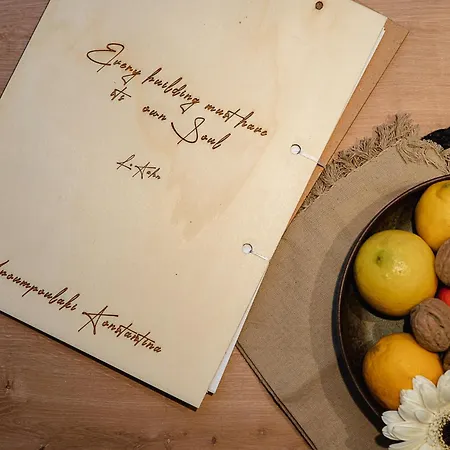 Every building must have
its own Soul
L. Kahn
Konstantina